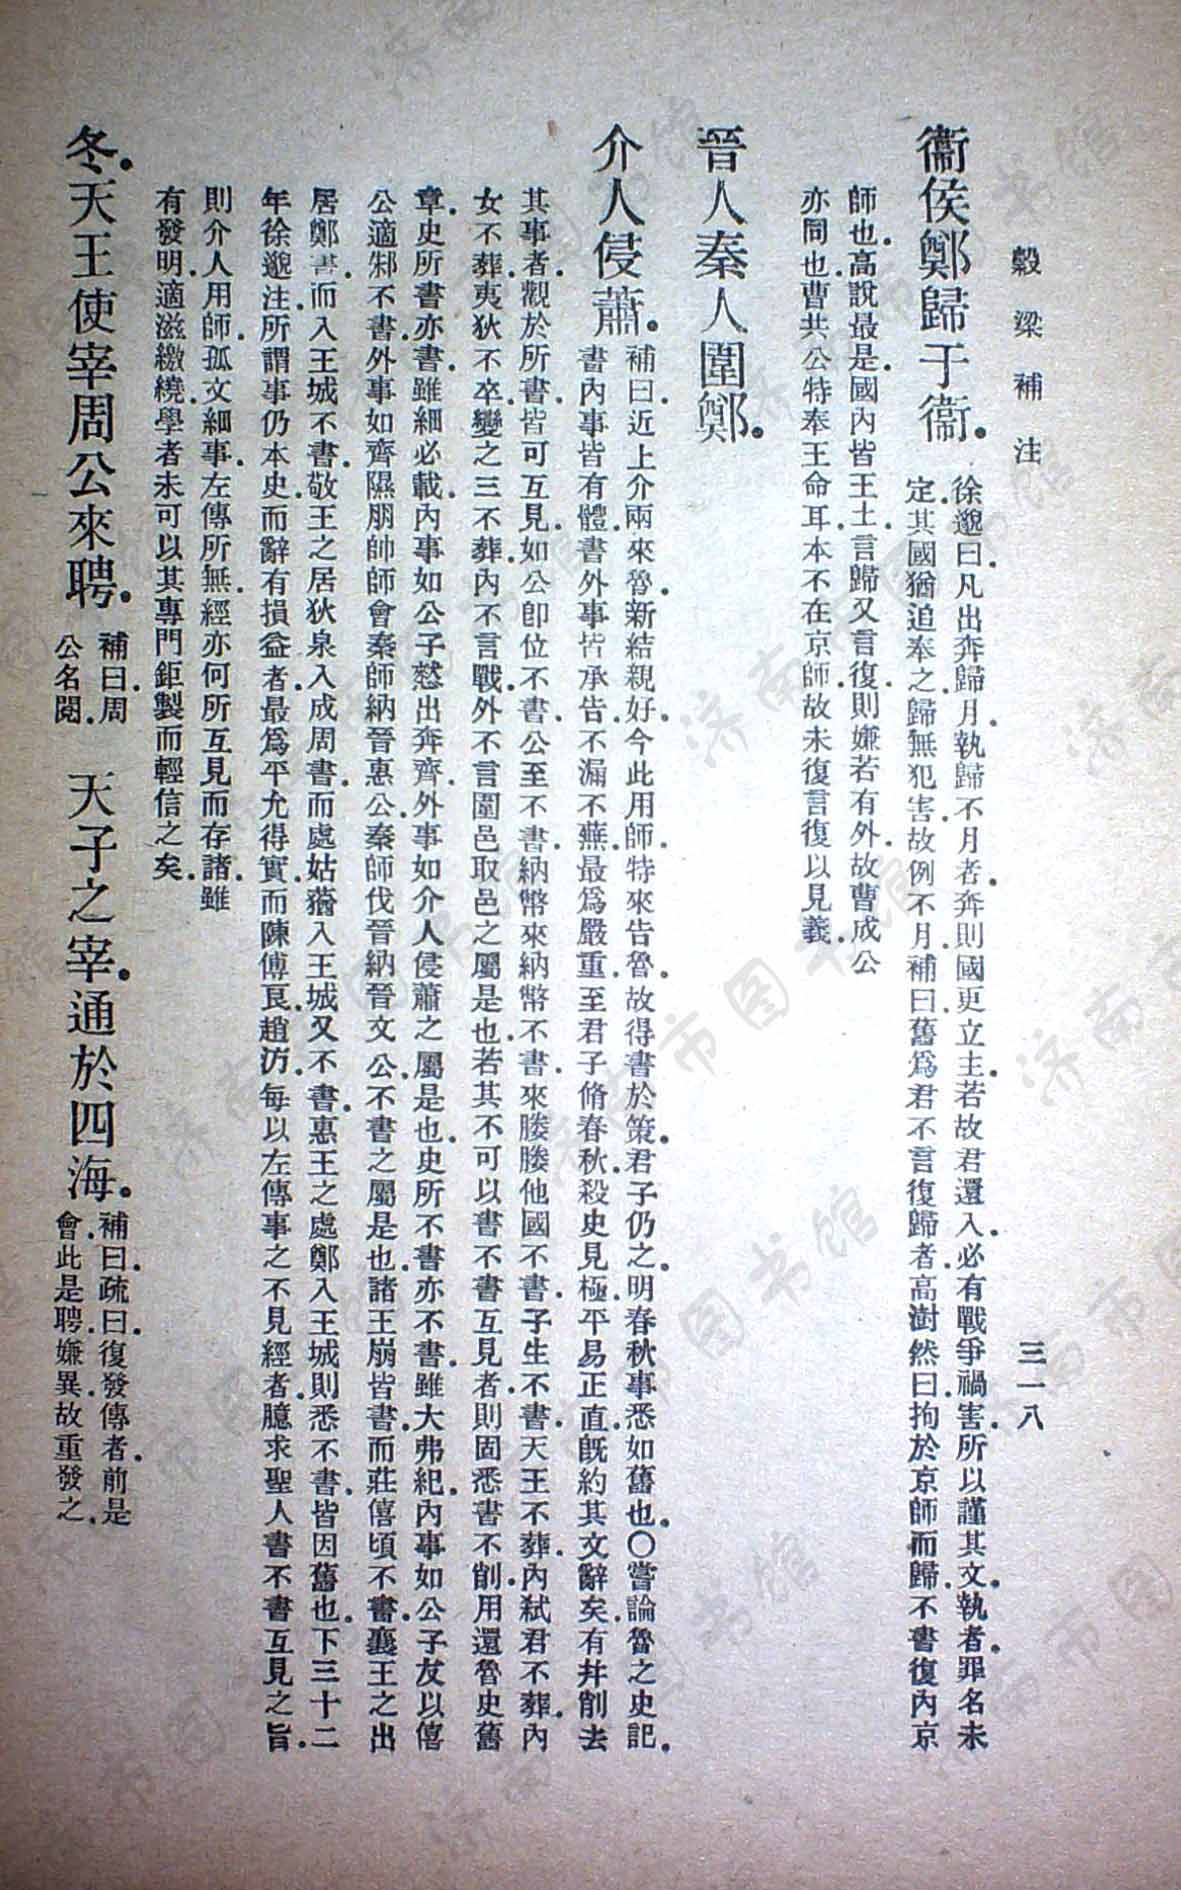 穀梁補注
三一八
衞侯鄭歸于衞。徐邈曰。凡出奔歸月。執歸不月者。奔則國更立主。若故君還入。必有戰爭禍害。所以謹其文。執者。罪名未
定。其國猶追奉之。歸無犯害。故例不月。補曰。舊爲君不言復歸者。高澍然曰。拘於京師而歸。不書復。內京
師也。高說最是。國內皆王土。言歸又言復。則嫌若有外。故曹成公
亦同也。曹共公特奉王命耳。本不在京師。故未復言復以見義。
晉人秦人圍鄭。
介人侵蕭。補曰。近上介兩來魯。新結親好。今此用師。特來告魯。故得書於策。君子仍之。明春秋事悉如舊也。〇嘗論魯之史記。
書內事皆有體。書外事皆承告。不漏不蕪。最爲嚴重。至君子脩春秋。殺史見極。平易正直。旣約其文辭矣。有幷削去
其事者。觀於所書。皆可互見。如公卽位不書。公至不書。納幣來納幣不書。來媵媵他國不書。子生不書。天王不葬。內弒君不葬。內
女不葬。夷狄不卒。變之三不葬。內不言戰。外不言圍邑取邑之屬是也。若其不可以書不書互見者。則固悉書不削。用還魯史舊
章。史所書亦書。雖細必載。內事如公子憖出奔齊。外事如介人侵蕭之屬是也。史所不書亦不書。雖大弗紀。內事如公子友以僖
公適邾不書。外事如齊隰朋帥師會秦師納晉惠公。秦師伐晉納晉文公。不書之屬是也。諸王崩皆書。而莊僖頃不書。襄王之出
居鄭書。而入王城不書。敬王之居狄泉入成周書。而處姑蕕入王城又不書。惠王之處鄭入王城則悉不書。皆因舊也。下三十二
年徐邈注。所謂事仍本史。而辭有損益者。最爲平允得實。而陳傅良。趙汸。每以左傳事之不見經者。臆求聖人書不書互見之旨。
則介人用師。孤文細事。左傳所無。經亦何所互見而存諸。雖
有發明。適滋繳繞。學者未可以其專門鉅製而輕信之矣。
冬。天王使宰周公來聘。補曰。周
公名閱。
天子之宰。通於四海。補曰。疏曰。復發傳者。前是
會。此是聘。嫌異。故重發之。